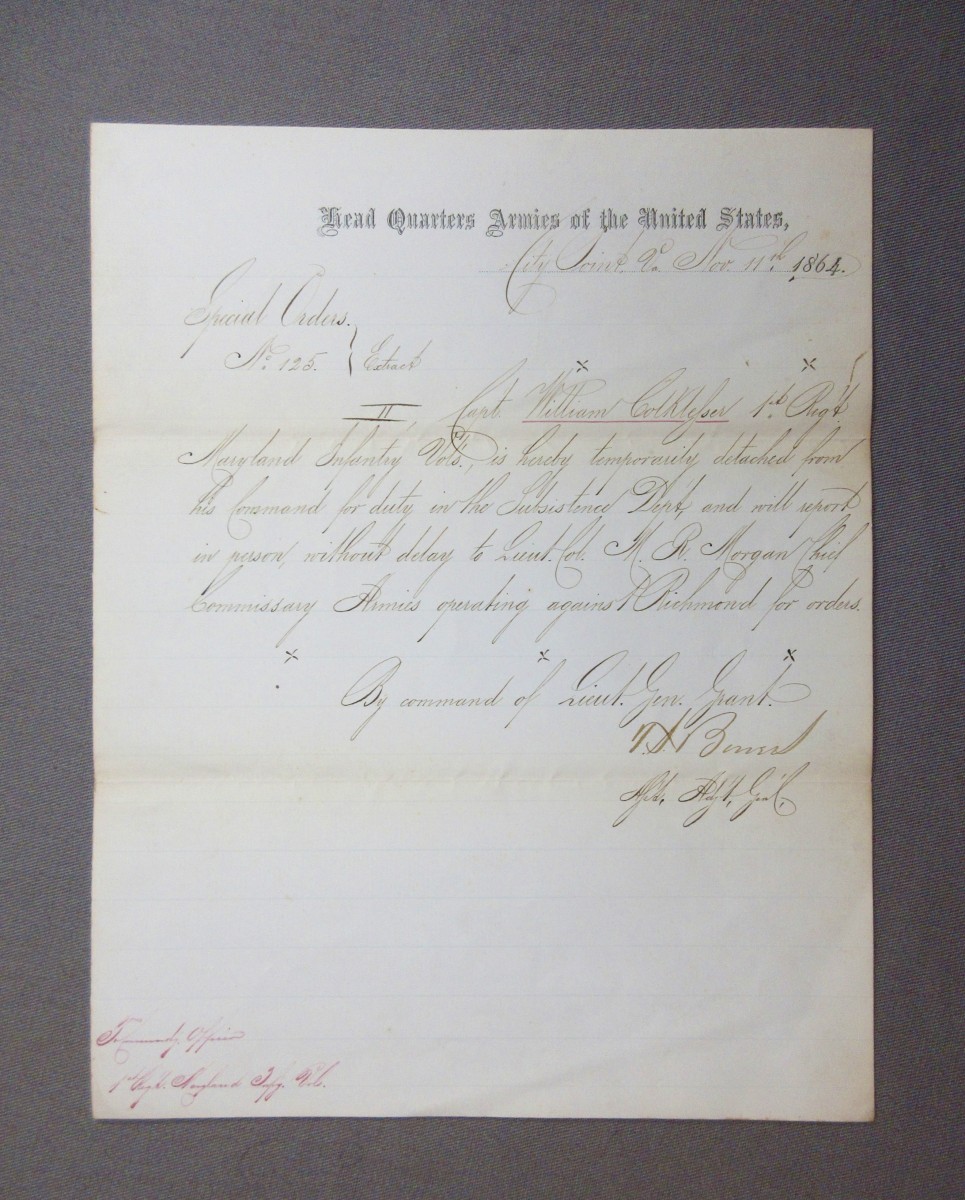 Head Quarters Armies of the United States,
City Point, Va. Nov. 11th 1864.
Special Orders.
No. 125. } Extract
x x
II, Capt. William Colklesser 1st Regt.
Maryland Infantry Vols., is hereby temporarily detached from
his Command for duty in the Subsistence Dept, and will report
in person, without delay to Lieut. Col. M. R. Morgan Chief
Commissary Armies operating against Richmond for orders.
x x x
By command of Lieut. Gen. Grant.
T. S. Bowers
Asst. Adjt. Genl.
Officer
1st Regt. Maryland Infy. Vols.